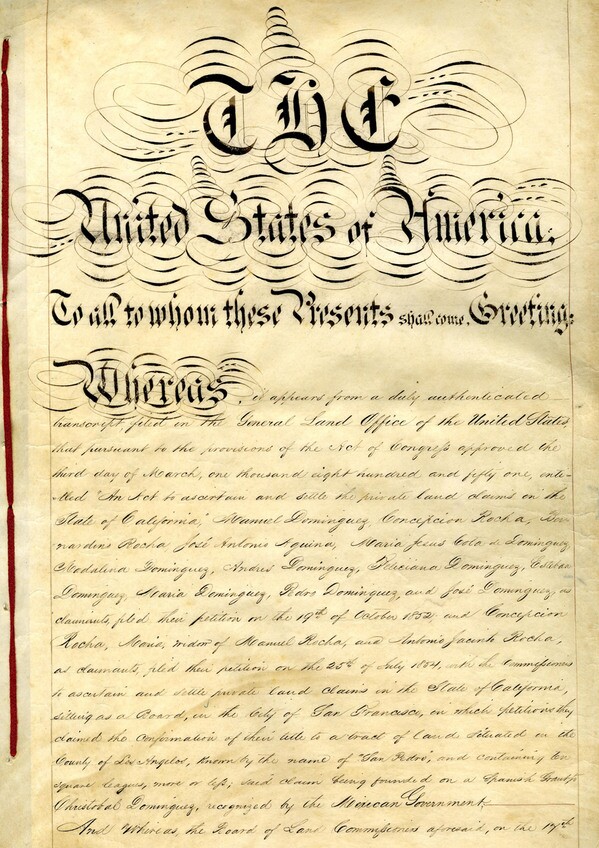 THE
United States of America,
To all to whom these Presents shall come, Greeting:
Whereas, it appears from a duly authenticated
transcript, filed in the General Land Office of the United States,
that pursuant to the provisions of the Act of Congress approved the
third day of March, one thousand eight hundred and fifty one, enti-
tled "An Act to ascertain and settle the private land claims in the
State of California," Manuel Dominguez, Concepcion Rocha, Ber-
nardino Rocha José Antonio Aguirra, Maria Jesus Cota de Dominguez,
Madalina Dominguez, Andres Dominguez, Feliciana Dominguez, Esteban
Dominguez, Maria Dominguez, Pedro Dominguez, and José Dominguez, as
claimants, filed their petition on the 19th of October 1852, and Concepcion
Rocha, widow of Manuel Rocha, and Antonio Jacinto Rocha,
as claimants, filed their petition on the 25th of July 1854, with the Commissioners
to ascertain and settle private land claims in the State of California,
sitting as a Board, in the City of San Francisco, in which petitions they
claimed the confirmation of their title to a tract of land situated in the
County of Los Angelos, known by the name of "San Pedro," and containing ten
square leagues, more or less; said claim being founded on a Spanish Grant to
Christobal Dominguez, recognized by the Mexican Government.
And Whereas, the Board of Land Commissioners aforesaid, on the 17th